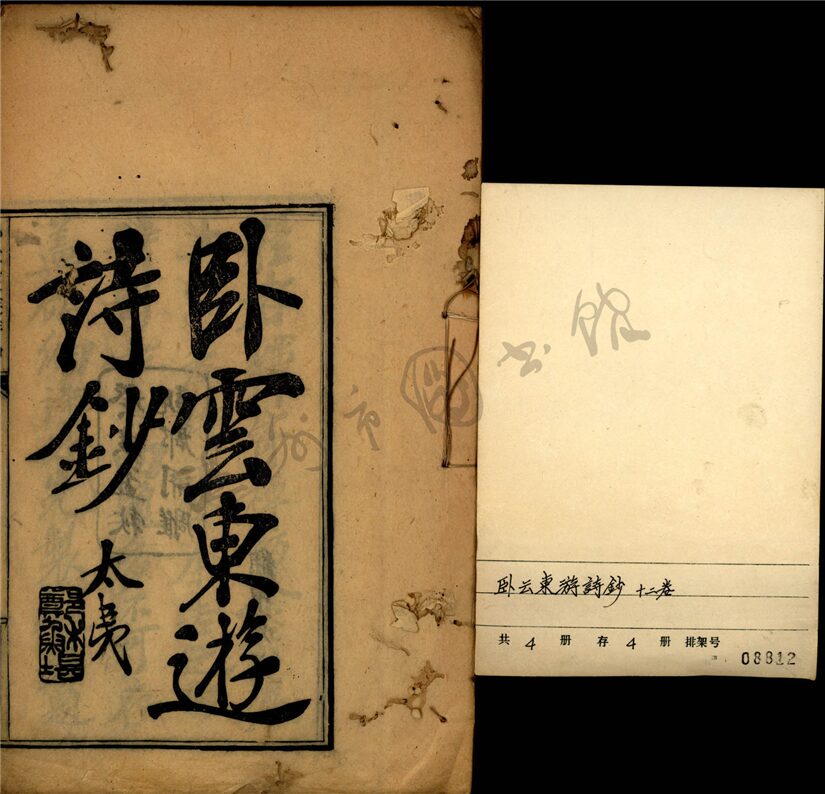 卧雲東遊
詩鈔
太夷
卧云東游詩鈔 十二卷
共 4 册 存 4 册 排架号
08812